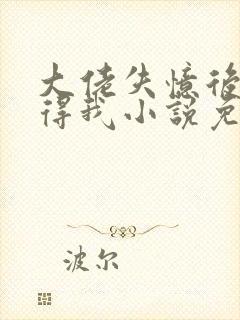 大佬失憶後
得我小說免
波尔